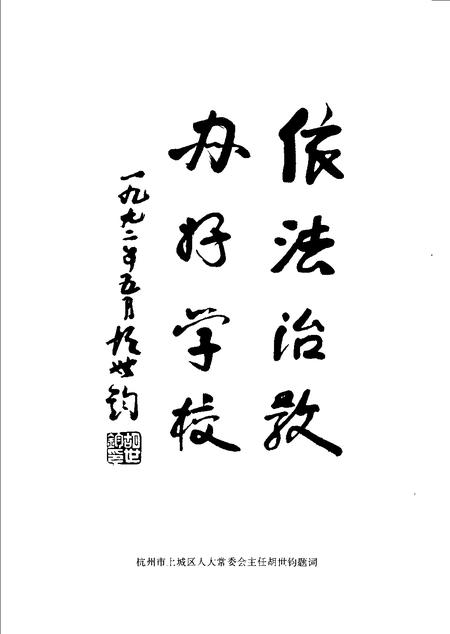 依法治教
办好学校
一九九二年五月胡世钧
胡世钧印
杭州市上城区人大常委会主任胡世钧题词